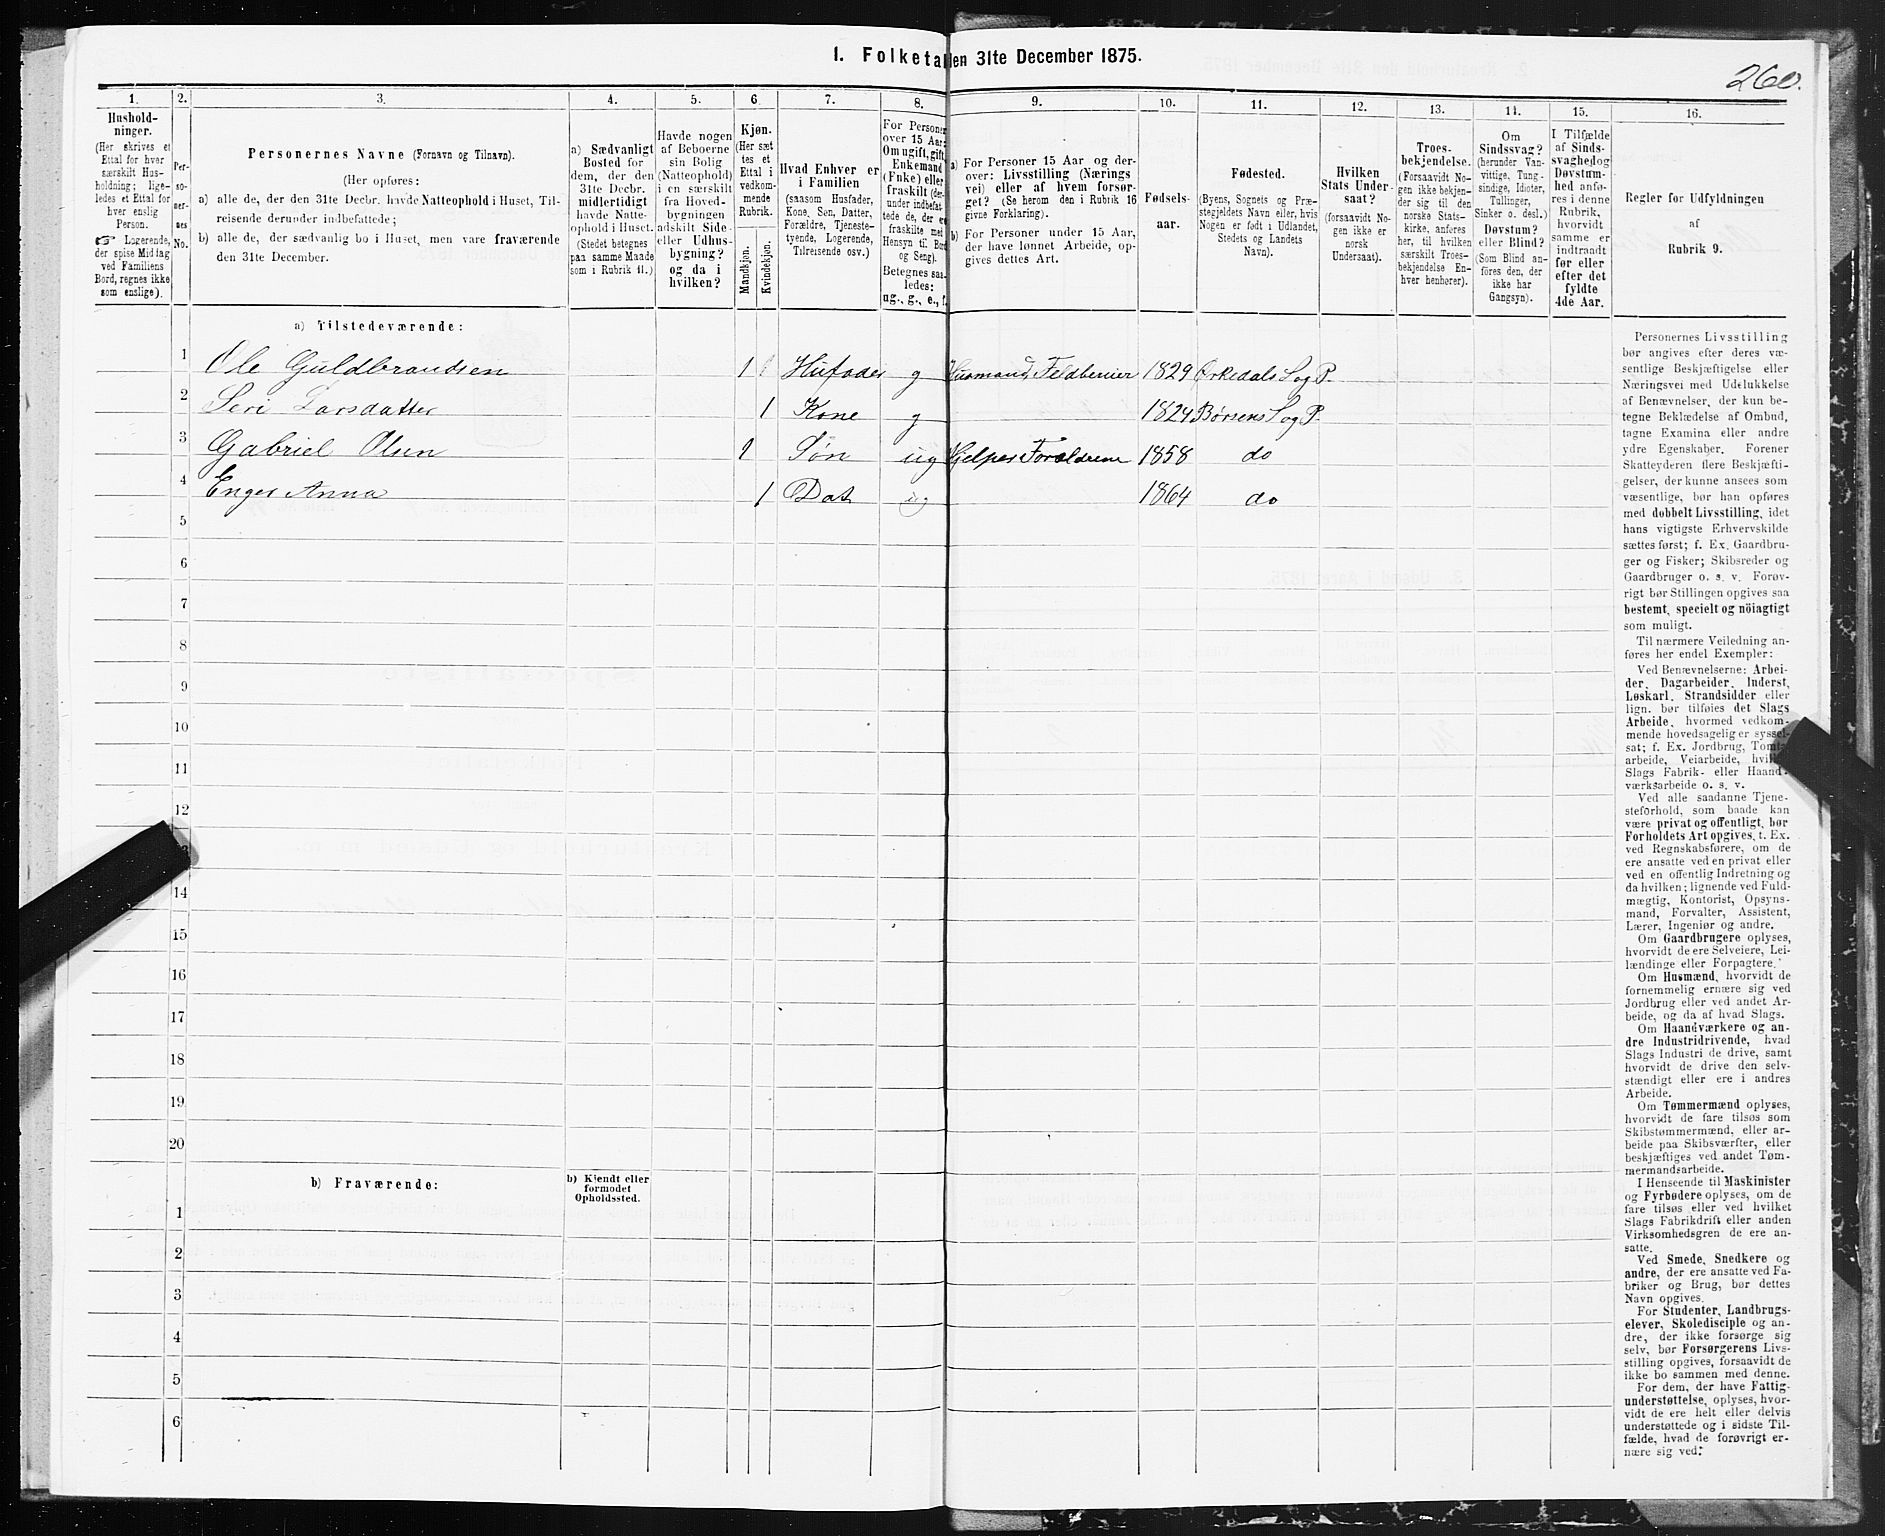 1. Folketa len 31te December 1875.
260.
1.
Hushold-
ninger.
(Her skrives et
Ettal for hver
særskilt Hus-
holdning; lige-
ledes et Ettal for
hver enslig
Person.
☞ Logerende,
der spise Middag
ved Familiens
Bord, regnes ikke
som enslige).
2.
Per-
so-
ner-
nes
No.
3.
Personernes Navne (Fornavn og Tilnavn).
(Her opføres:
a) alle de, der den 31te Decbr. havde Natteophold i Huset, Til-
reisende derunder indbefattede;
b) alle de, der sædvanlig bo i Huset, men vare fraværende
den 31te December.
4.
a) Sædvanligt
Bosted for
dem, der den
31te Decbr.
midlertidigt
havde Natte-
ophold i Huset.
(Stedet betegnes
paa samme Maade
som i Rubrik 11.)
5.
Havde nogen
af Beboerne
sin Bolig
(Natteophold)
i en særskilt
fra Hoved-
bygningen
adskilt Side-
eller Udhus-
bygning?
og da i
hvilken?
6.
Kjøn.
(Her sæt
tes et
Ettal i
vedkom-
mende
Rubrik.
Mandkjøn.
Kvindekjøn.
7.
Hvad Enhver er
i Familien
(saasom Husfader,
Kone, Søn, Datter,
Forældre, Tjeneste-
tyende, Logerende,
Tilreisende osv.)
8.
For Personer
over 15 Aar:
Om ugift, gift,
Enkemand
(Enke) eller
fraskilt (der-
under indbefat-
tede de, der er
fraskilte med
Hensyn til Bord
og Seng).
Betegnes saa-
ledes:
ug., g., e., f.
9.
a) For Personer 15 Aar og der-
over: Livsstilling (Nærings
vei) eller af hvem forsør-
get? (Se herom den i Rubrik 16
givne Forklaring).
b) For Personer under 15 Aar,
der have lønnet Arbeide, op-
gives dettes Art.
10.
Fødsels-
aar.
11.
Fødested.
(Byens, Sognets og Præ-
stegjeldets Navn eller, hvis
Nogen er født i Udlandet,
Stedets og Landets
Navn).
12.
Hvilken
Stats Under-
saat?
(forsaavidt No-
gen ikke er
norsk
Undersaat).
13.
Troes-
bekjendelse.
(Forsaavidt No-
gen ikke bekjen-
der sig til den
norske Stats-
kirke, anføres
her, til hvilken
særskilt Troes-
bekjendelse En-
hver henhører).
14.
Om
Sindssvag?
(herunder Van-
vittige, Tung-
sindige, Idioter,
Tullinger,
Sinker o. desl.)
Døvstum?
eller Blind?
(Som Blind an-
føres den, der
ikke har
Gangsyn).
15.
I Tilfælde
af Sinds-
svaghed og
Døvstum-
hed anfø-
res i denne
Rubrik,
hvorvidt
samme er
indtraadt
før eller
efter det
fyldte
4de Aar.
16.
Regler for Udfyldningen
af
Rubrik 9.
a) Tilstedeværende:
1 Ole Guldbrandsen 1 Hufader g Husmand, Feldbereder 1829 Orkedals S og P.
2 Seri Larsdatter 1 Kone g 1824 Børsens S og P.
3 Gabriel Olsen 1 Søn ug Hjelper Forældrene 1858 do
4 Enger Anna 1 Dat ug 1864 do
5
6
7
8
9
10
11
12
14
15
16
17
18
19
20
b) Fraværende:
b) Kjendt eller
formodet
Opholdssted.
1
2
3
4
5
6
Personernes Livsstilling
bør angives efter deres væ-
sentlige Beskjæftigelse eller
Næringsvei med Udelukkelse
af Benævnelser, der kun be-
tegne Beklædelse af Ombud,
tagne Examina eller andre
ydre Egenskaber. Forener
Skatteyderen flere Beskjæfti-
gelser, der kunne ansees som
væsentlige, bør han opføres
med dobbelt Livsstilling, idet
hans vigtigste Erhvervskilde
sættes først; f. Ex. Gaardbru-
ger og Fisker; Skibsreder og
Gaardbruger o. s. v. Forøv-
rigt bør Stillingen opgives saa
bestemt, specielt og nöiagtigt
som muligt.
Til nærmere Veiledning an-
føres her endel Exempler:
Ved Benævnelserne: Arbei-
der, Dagarbeider, Inderst,
Løskarl, Strandsidder eller
lign. bør tilføies det Slags
Arbeide, hvormed vedkom-
mende hovedsagelig er syssel-
sat; f. Ex. Jordbrug, Tomt-
arbeide, Veiarbeide, hvil
Slags Fabrik- eller Haand-
værksarbeide o. s. v.
Ved alle saadanne Tjene-
steforhold, som baade kan
være privat og offentligt, bør
Forholdets Art opgives, t. Ex.
ved Regnskabsførere, om de
ere ansatte ved en privat eller
ved en offentlig Indretning og
da hvilken; lignende ved Fuld-
mægtig, Kontorist, Opsyns-
mand, Forvalter, Assistent,
Lærer, Ingeniør og andre.
Om Gaardbrugere oplyses,
hvorvidt de ere Selveiere, Lei-
lændinge eller Forpagtere.
Om Husmænd, hvorvidt de
fornemmelig ernære sig ved
Jordbrug eller ved andet Ar-
beide, og da af hvad Slags.
Om Haandværkere og an-
dre Industridrivende, hvad
Slags Industri de drive, samt
hvorvidt de drive den selv-
stændigt eller ere i andres
Arbeide.
Om Tømmermænd oplyses,
hvorvidt de fare tilsøs som
Skibstømmermænd, eller ar-
beide paa Skibsværfter, eller
beskjæftiges ved andet Tøm-
mermandsarbeide.
I Henseende til Maskinister
og Fyrbødere oplyses, om de
fare tilsøs eller ved hvilket
Slags Fabrikdrift eller anden
Virksomhedsgren de ere an-
satte.
Ved Smede, Snedkere og
andre, der ere ansatte ved Fa-
briker og Brug, bør dettes
Navn opgives.
For Studenter, Landbrugs-
elever, Skoledisciple og an-
dre, der ikke forsørge sig
selv, bør Forsørgerens Livs-
stilling opgives, forsaavidt de
ikke bo sammen med denne.
For dem, der have Fattig-
understøttelse, oplyses, hvor-
vidt de ere helt eller delvis
understøttede og i sidste Til-
fælde, hvad de forøvrigt er-
nære sig ved.